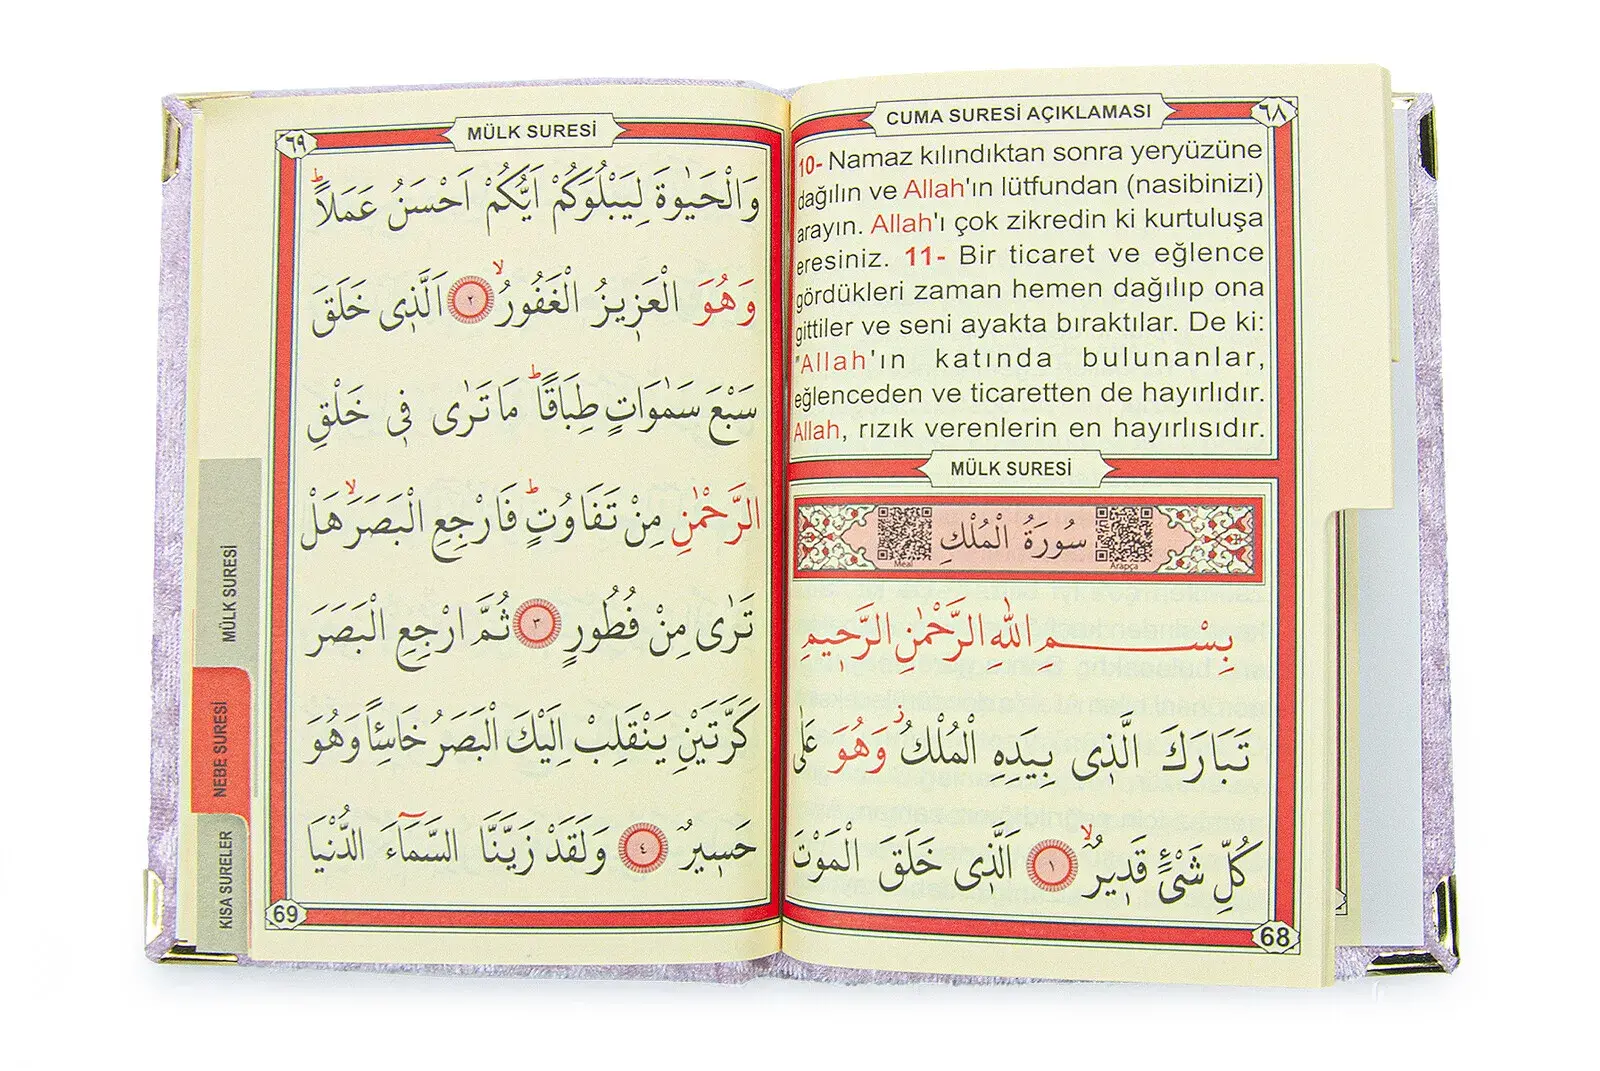 CUMA SURESİ AÇIKLAMASI
٦٨
10- Namaz kılındıktan sonra yeryüzüne
dağılın ve Allah'ın lütfundan (nasibinizi)
arayın. Allah'ı çok zikredin ki kurtuluşa
eresiniz. 11- Bir ticaret ve eğlence
gördükleri zaman hemen dağılıp ona
gittiler ve seni ayakta bıraktılar. De ki:
"Allah'ın katında bulunanlar,
eğlenceden ve ticaretten de hayırlıdır.
Allah, rızık verenlerin en hayırlısıdır.
MÜLK SURESİ
سُورَةُ الْمُلْكِ
Meal
Arapça
بِسْمِ اللّٰهِ الرَّحْمٰنِ الرَّح۪يمِ
تَبَارَكَ الَّذ۪ي بِيَدِهِ الْمُلْكُۘ وَهُوَ عَلٰى
كُلِّ شَيْءٍ قَد۪يرٌۙ ١ اَلَّذ۪ي خَلَقَ الْمَوْتَ
68
٦٩
MÜLK SURESİ
وَالْحَيٰوةَ لِيَبْلُوَكُمْ اَيُّكُمْ اَحْسَنُ عَمَلاًۜ
وَهُوَ الْعَز۪يزُ الْغَفُورُۙ ٢ اَلَّذ۪ي خَلَقَ
سَبْعَ سَمٰوَاتٍ طِبَاقًاۜ مَا تَرٰى ف۪ي خَلْقِ
الرَّحْمٰنِ مِنْ تَفَاوُتٍۜ فَارْجِعِ الْبَصَرَۙ هَلْ
تَرٰى مِنْ فُطُورٍ ٣ ثُمَّ ارْجِعِ الْبَصَرَ
كَرَّتَيْنِ يَنْقَلِبْ اِلَيْكَ الْبَصَرُ خَاسِئًا وَهُوَ
حَس۪يرٌ ٤ وَلَقَدْ زَيَّنَّا السَّمَٓاءَ الدُّنْيَا
69
MÜLK SURESİ
NEBE SURESİ
KISA SURELER